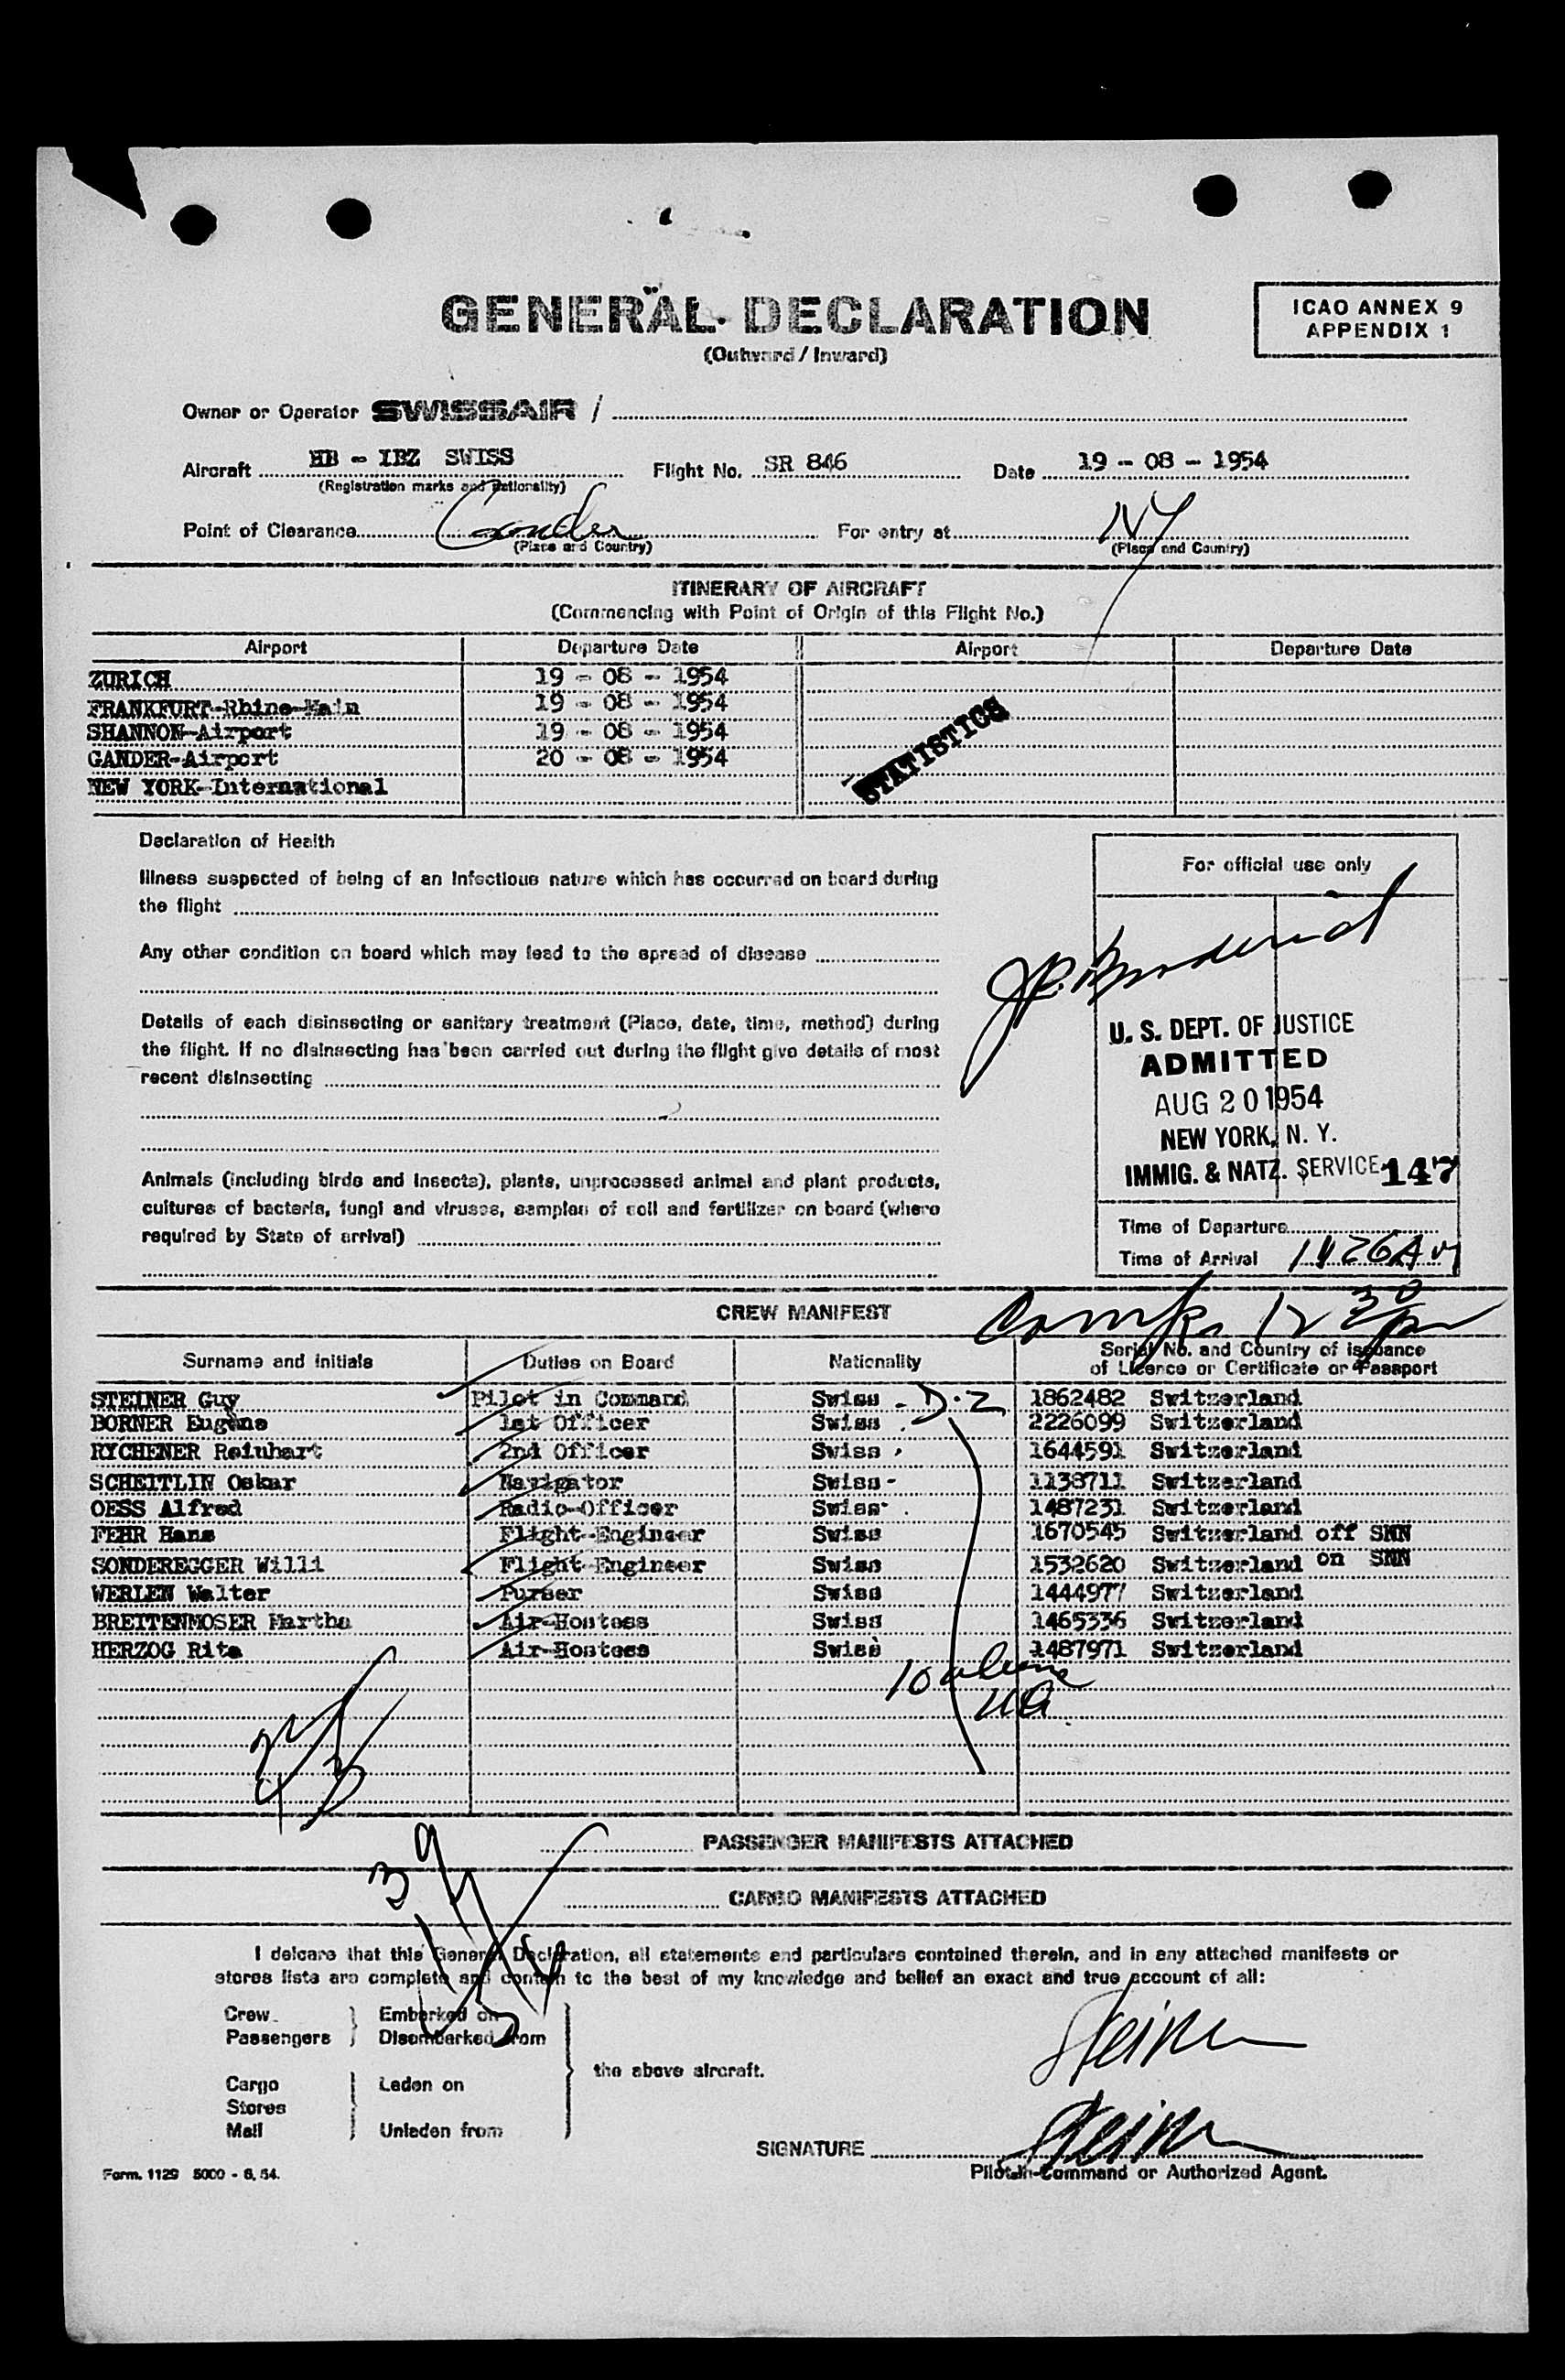 GENERAL DECLARATION
(Outward / Inward)
ICAO ANNEX 9
APPENDIX 1
Owner or Operator SWISSAIR /
Aircraft HB - IBZ SWISS Flight No. SR 846 Date 19 - 08 - 1954
(Registration marks and nationality)
Point of Clearance Gander For entry at NY
(Place and Country) (Place and Country)
ITINERARY OF AIRCRAFT
(Commencing with Point of Origin of this Flight No.)
Airport Departure Date Airport Departure Date
ZURICH 19 - 08 - 1954
FRANKFURT-Rhine-Main 19 - 08 - 1954
SHANNON-Airport 19 - 08 - 1954
GANDER-Airport 20 - 08 - 1954
NEW YORK-International
STATISTICS
Declaration of Health
Illness suspected of being of an infectious nature which has occurred on board during
the flight
Any other condition on board which may lead to the spread of disease
Details of each disinsecting or sanitary treatment (Place, date, time, method) during
the flight. If no disinsecting has been carried out during the flight give details of most
recent disinsecting
Animals (including birds and insects), plants, unprocessed animal and plant products,
cultures of bacteria, fungi and viruses, samples of soil and fertilizer on board (where
required by State of arrival)
For official use only
U. S. DEPT. OF JUSTICE
ADMITTED
AUG 20 1954
NEW YORK, N. Y.
IMMIG. & NATZ. SERVICE 147
Time of Departure
Time of Arrival 1126AM
CREW MANIFEST
12 30
Surname and Initials Duties on Board Nationality Serial No. and Country of issuance
of Licence or Certificate or Passport
STEINER Guy Pilot in Command Swiss D-2 1862482 Switzerland
BORNER Eugène 1st Officer Swiss 2226099 Switzerland
RYCHENER Reinhart 2nd Officer Swiss 1644591 Switzerland
SCHEITLIN Oskar Navigator Swiss 1138711 Switzerland
OESS Alfred Radio-Officer Swiss 1487231 Switzerland
FEHR Hans Flight-Engineer Swiss 1670545 Switzerland off SNN
SONDEREGGER Willi Flight-Engineer Swiss 1532620 Switzerland on SNN
WERLEN Walter Purser Swiss 1444977 Switzerland
BREITENMOSER Martha Air-Hostess Swiss 1465336 Switzerland
HERZOG Rita Air-Hostess Swiss 1487971 Switzerland
10
PASSENGER MANIFESTS ATTACHED
39
CARGO MANIFESTS ATTACHED
I delcare that this General Declaration, all statements and particulars contained therein, and in any attached manifests or
stores lists are complete and contain to the best of my knowledge and belief an exact and true account of all:
Crew Embarked on
Passengers Disembarked from
the above aircraft.
Cargo Laden on
Stores
Mail Unladen from
Steiner
SIGNATURE Steiner
Pilot-in-Command or Authorized Agent.
Form. 1129 5000 - 6. 54.